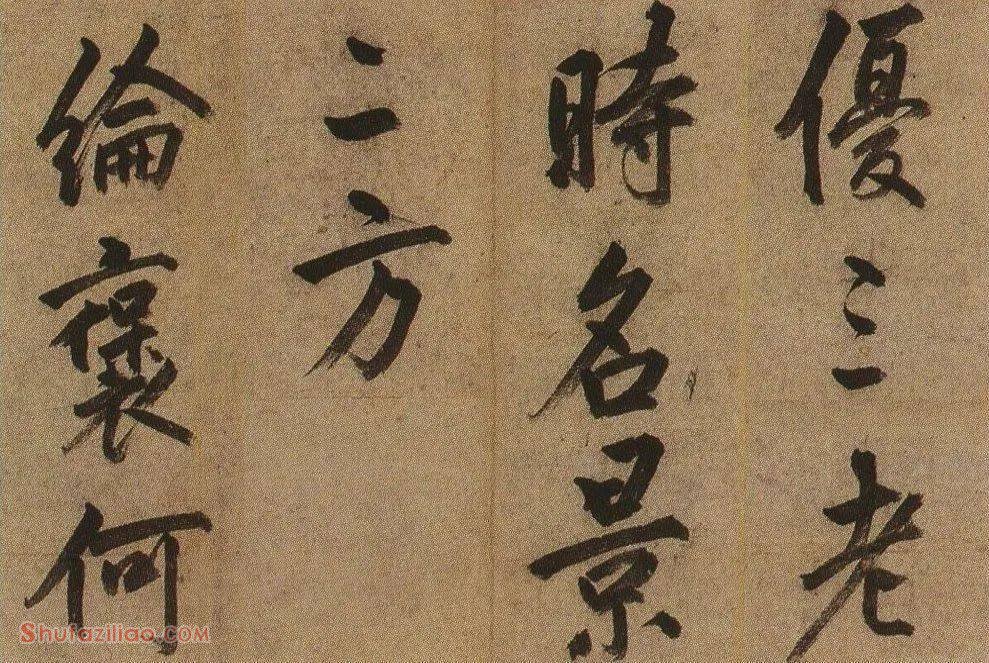 優三老
時名景
二方
綸褒何
Shufaziliao.COM